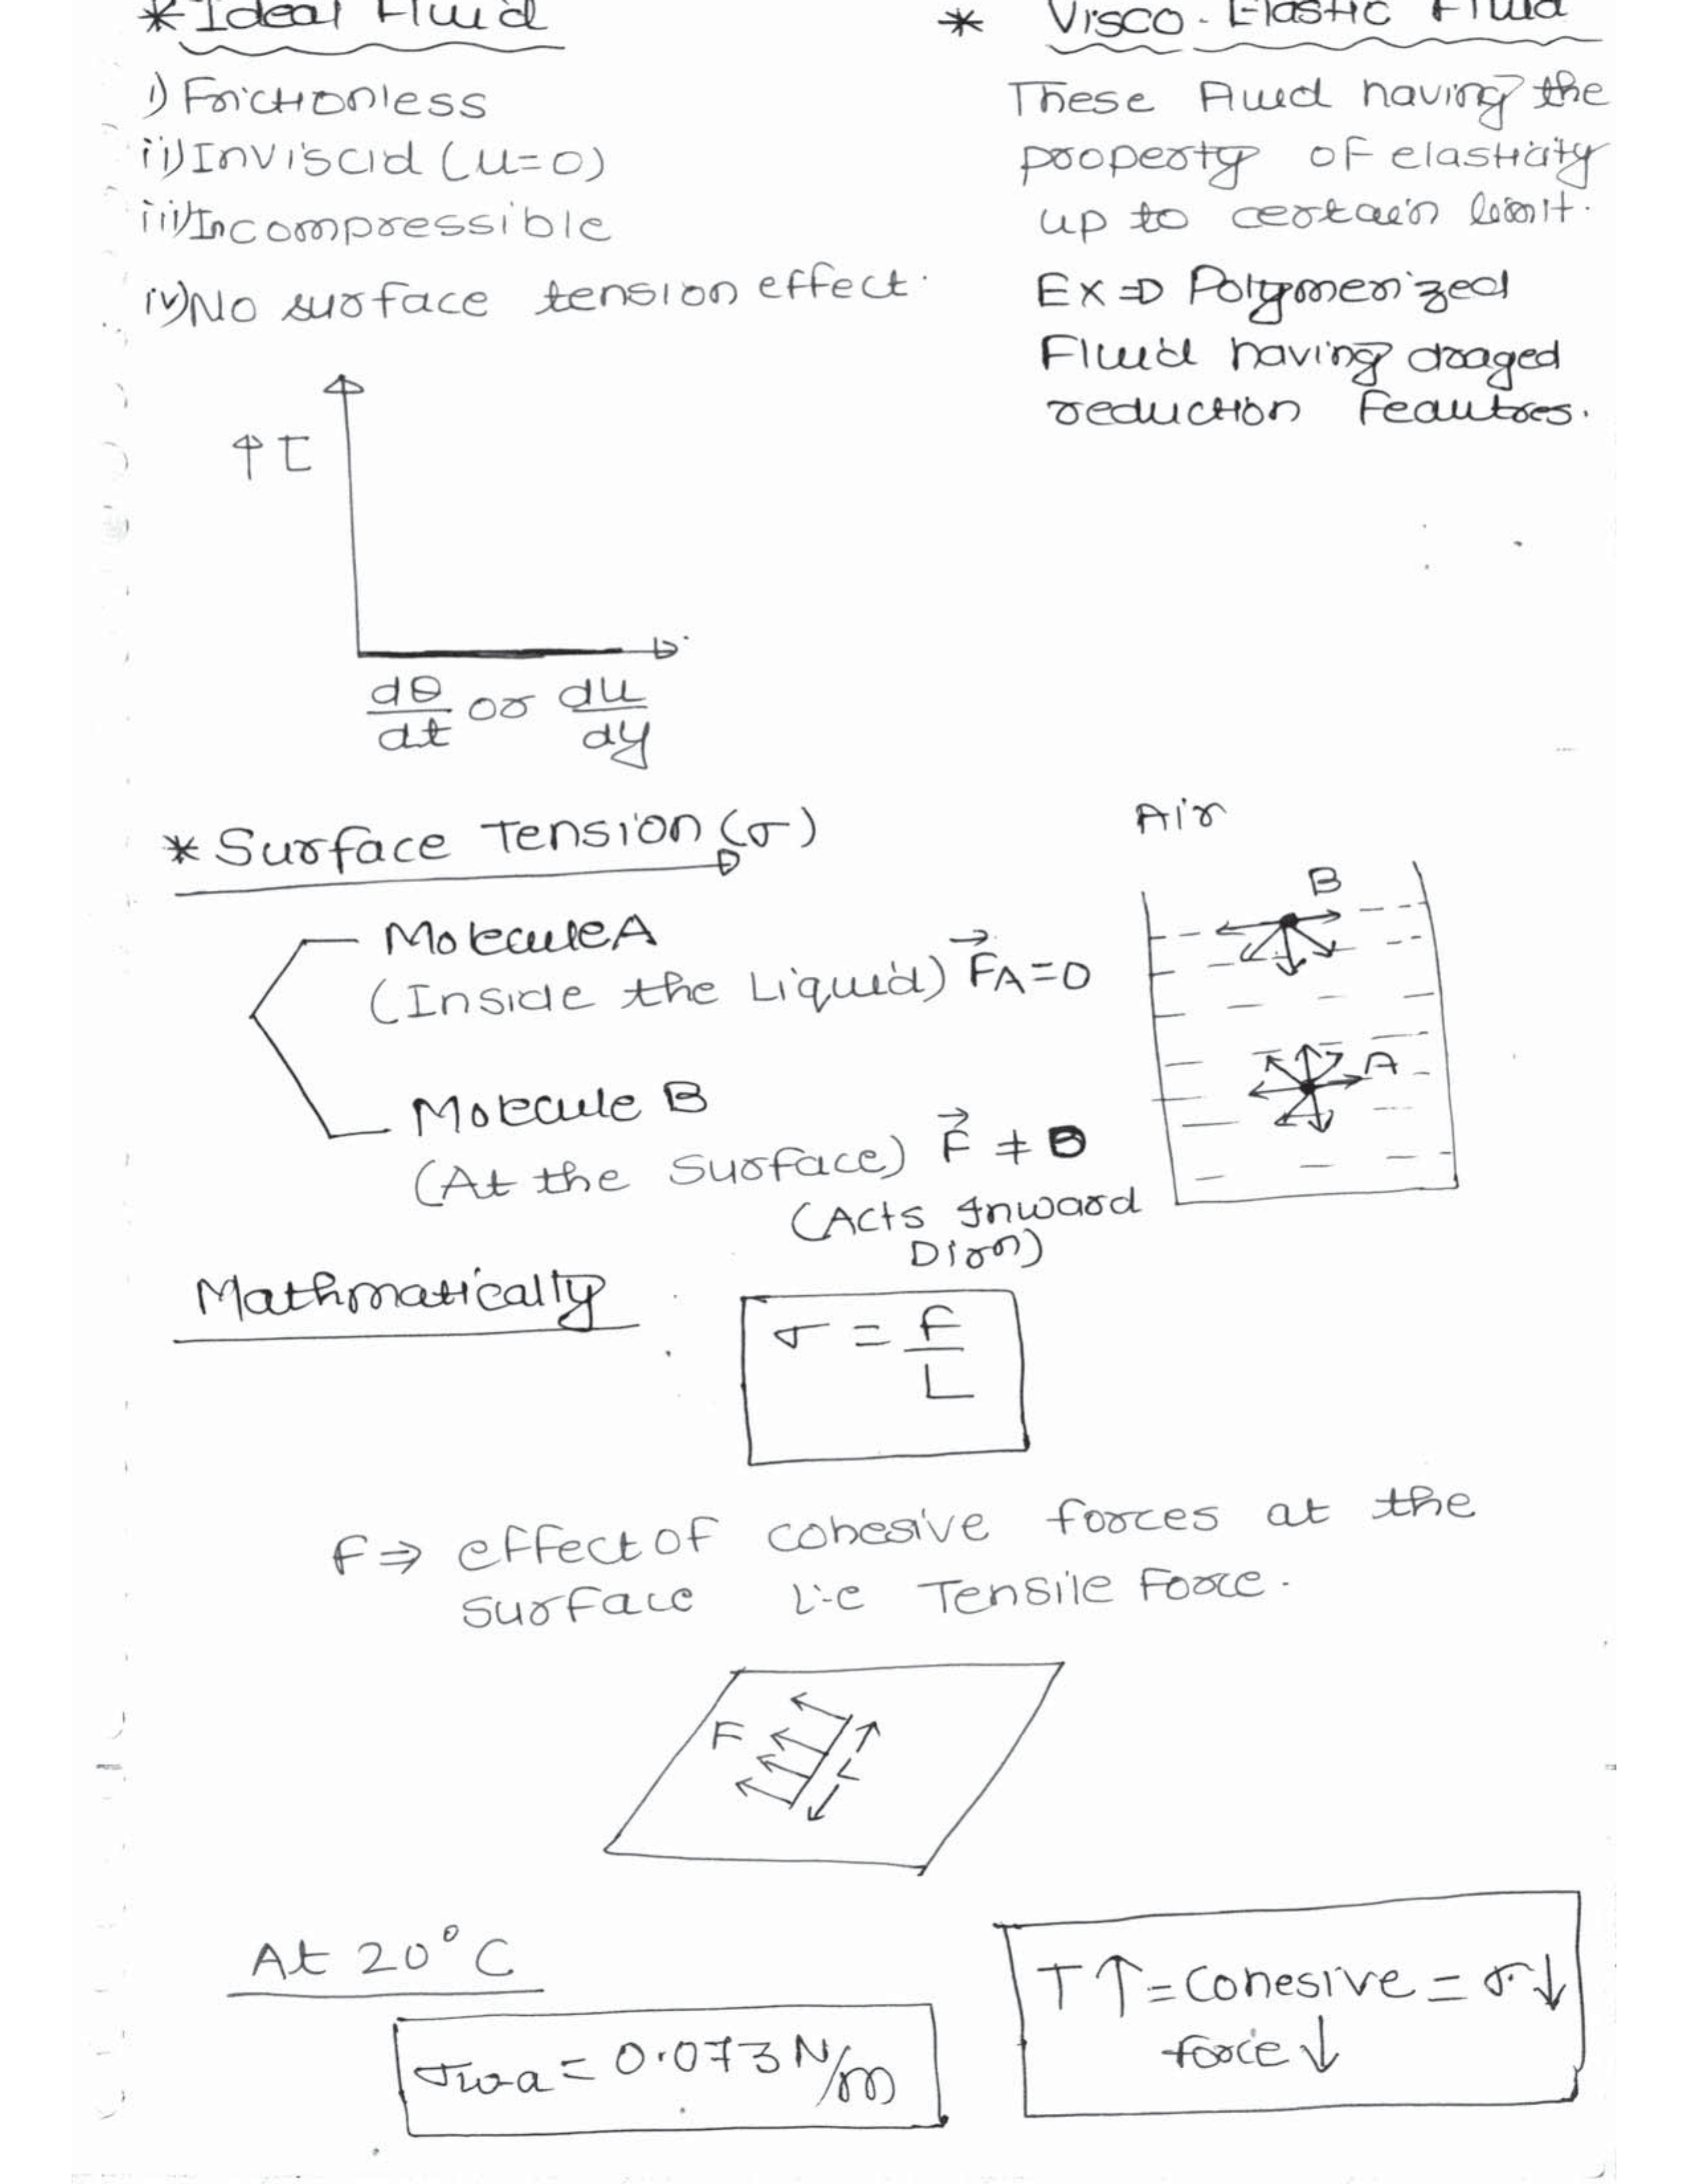 * Ideal Fluid
i) Frictionless
ii) Inviscid (u=0)
iii) Incompressible
iv) No surface tension effect.
* Visco-Elastic Fluid
These Fluid having the
property of elasticity
up to certain limit.
Ex ⇒ Polymerized
Fluid having draged
reduction Feautres.
↑ τ
dθ/dt or du/dy
* Surface Tension (σ)
Molecule A
(Inside the Liquid) F⃗A = 0
Molecule B
(At the Surface) F⃗ ≠ 0
(Acts Inward
Dirn)
Air
B
A
Mathmatically
σ = F/L
F ⇒ effect of cohesive forces at the
surface i.e Tensile Force.
F
L
At 20°C
σwa = 0.073 N/m
T↑ = Cohesive = σ↓
force ↓